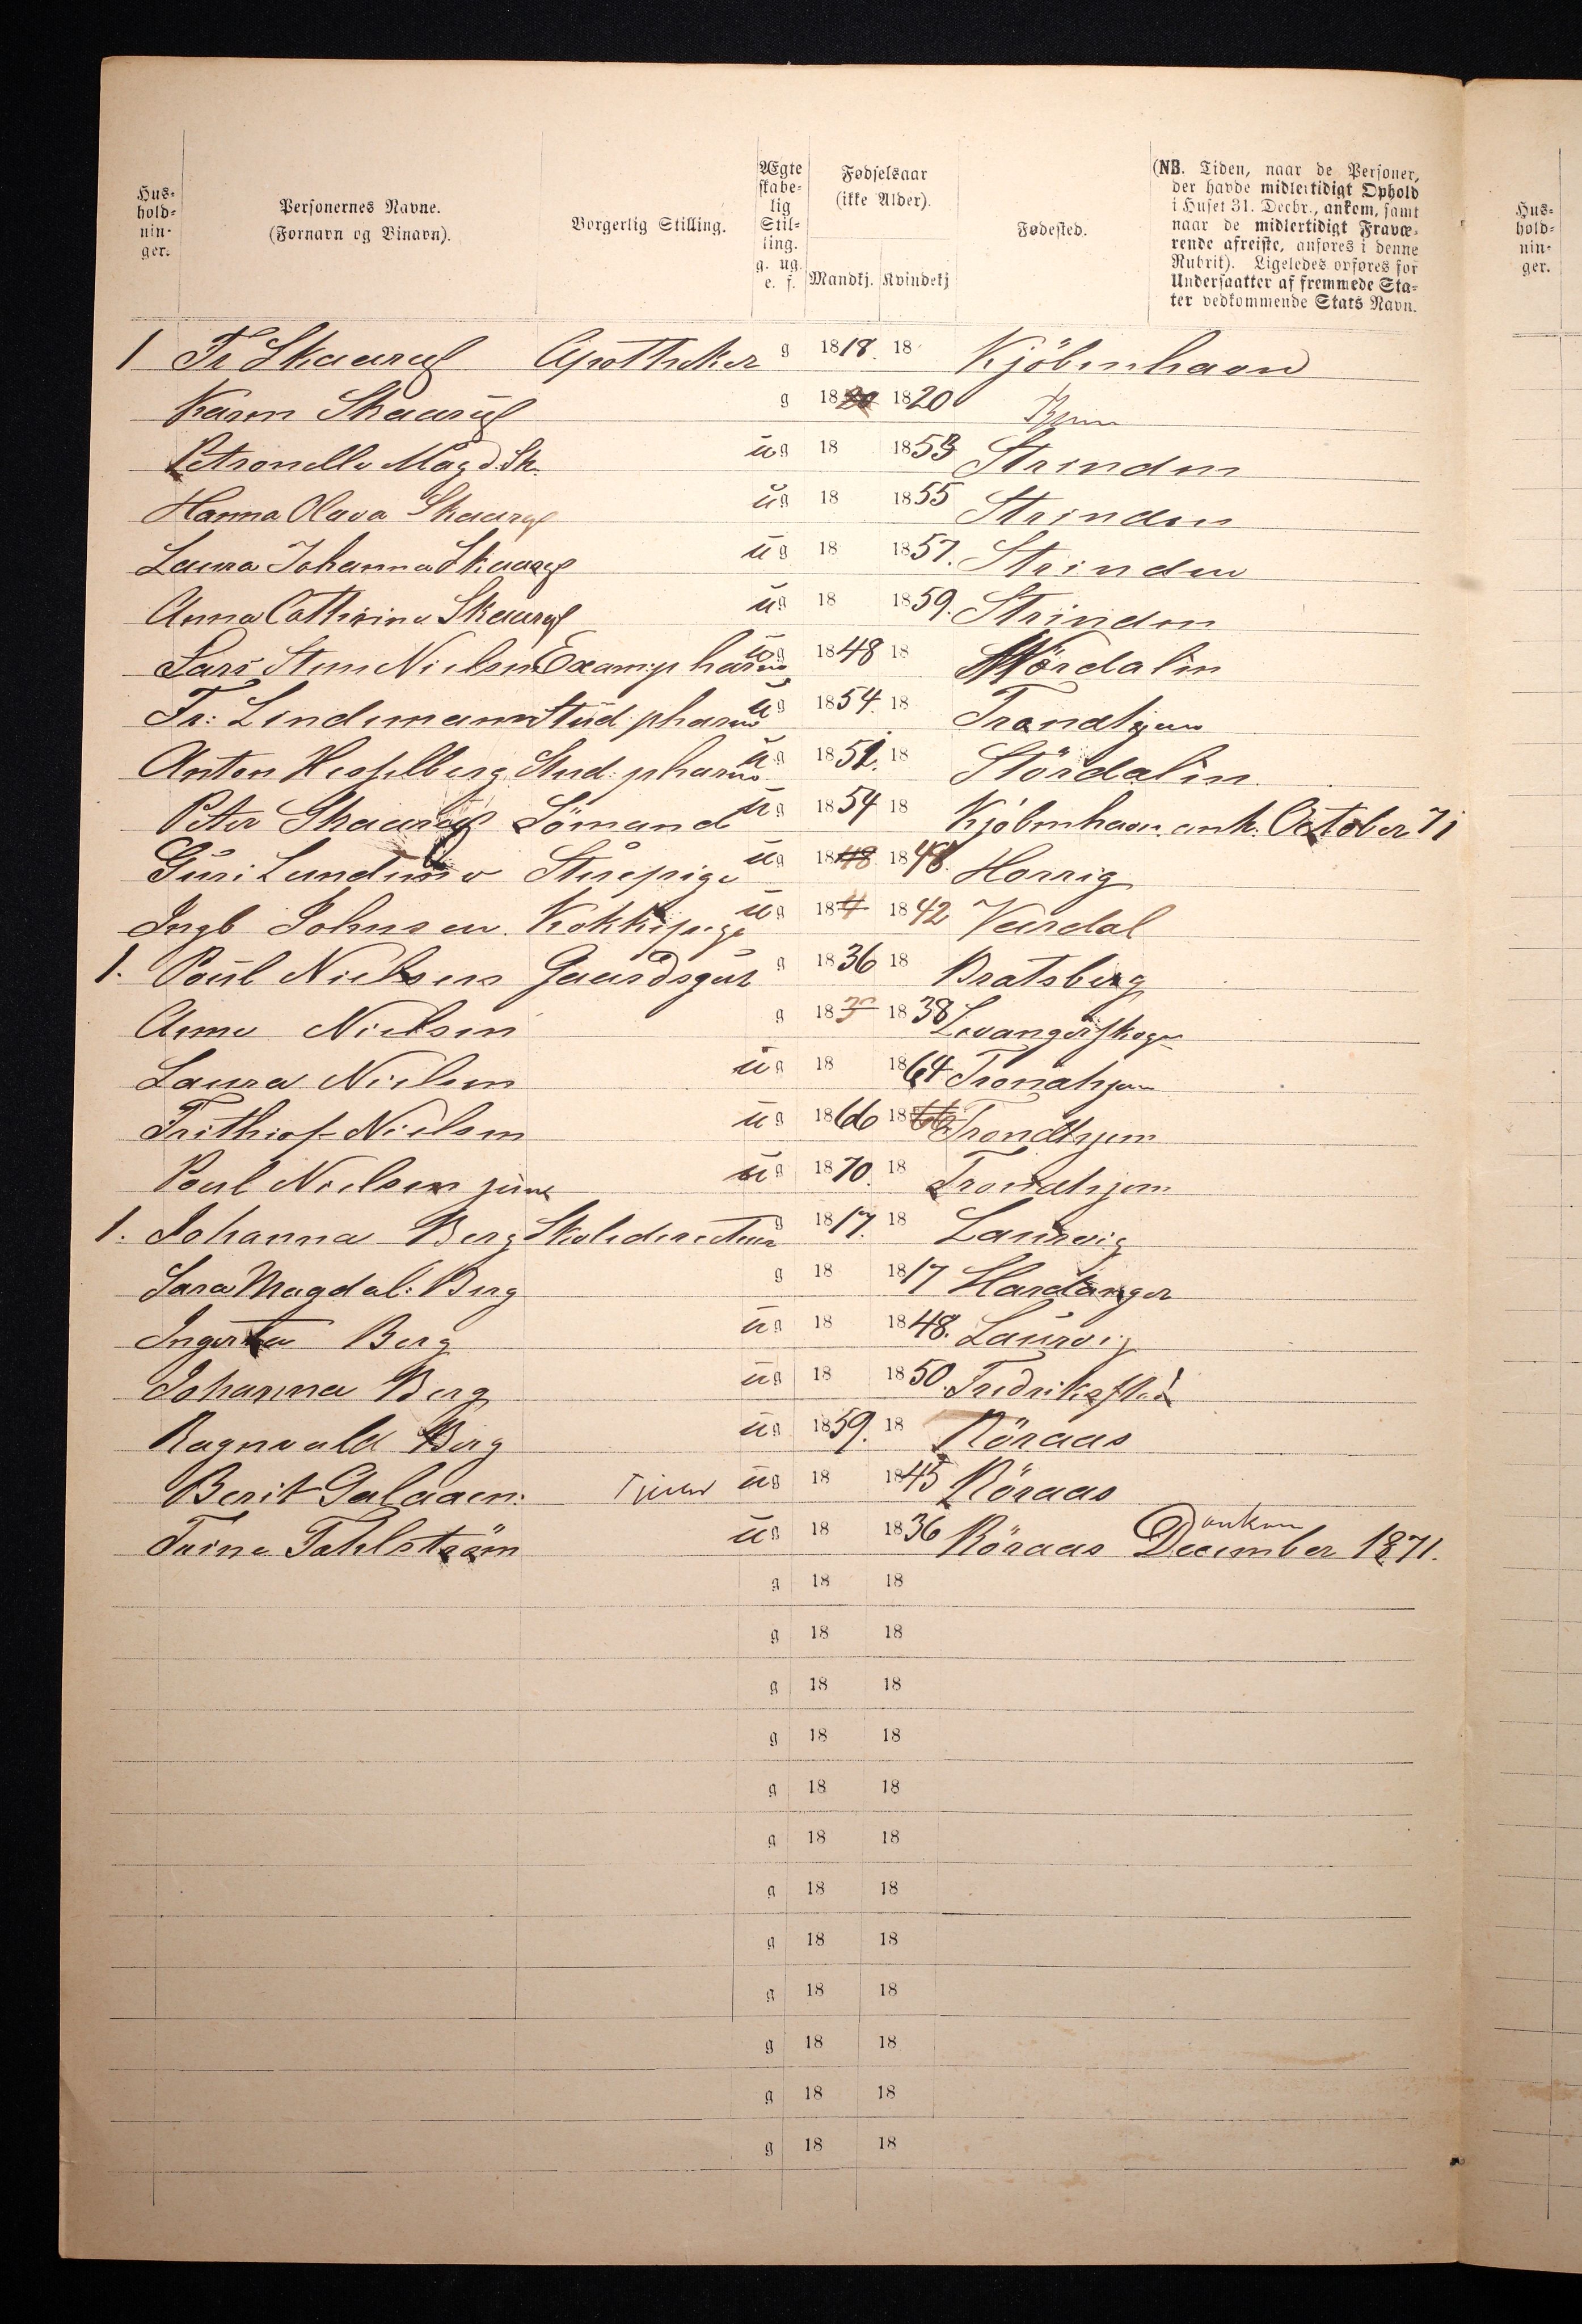 Hus-
hold-
nin-
ger.
Personernes Navne.
(Fornavn og Binavn).
Borgerlig Stilling.
Ægte
skabe-
lig
Stil-
ling.
g. ug.
e. f.
Fødselsaar
(ikke Alder).
Mandkj. Kvindekj
Fødested.
(NB. Tiden, naar de Personer,
der havde midlertidigt Ophold
i Huset 31. Decbr., ankom, samt
naar de midlertidigt Fravæ-
rende afreiste, anføres i denne
Rubrik). Ligeledes opføres for
Undersaatter af fremmede Sta-
ter vedkommende Stats Navn.
Hus-
hold-
nin-
ger.
1 Fr Skaarup Apotheker g 1818. 18 Kjöbenhavn
Karen Skaarup g 1820 1820
Petronelle Magd. Sk. ug 18 1853 Strinden
Hanna Olava Skaarup ug 18 1855 Strinden
Laura Johanna Skaarup ug 18 1857. Strinden
Anna Cathrina Skaarup ug 18 1859. Strinden
Lars Steen Nielsen Exam. pharm ug 1848 18 Værdalen
Fr: Lindemann Stud: pharm ug 1854. 18 Trondhjem
Anton Hesselberg Stud: pharm ug 1851. 18 Stördalen
Peter Skaarup Sömand ug 1854 18 Kjöbenhavn. ank. October 71
Guri Lundemo Stuepige ug 1848 1848 Horrig
Ingb Johnsen. Kokkepige ug 184 1842 Værdal
1. Poul Nielsen Gaardsgut g 1836 18 Bratsberg
Anne Nielsen g 183 1838 Levangerskogn
Laura Nielsen ug 18 1864 Trondhjem
Frithiof Nielsen ug 1866 1866 Trondhjem
Poul Nielsen jun ug 1870. 18 Trondhjem
1. Johanna Berg Skoledirecteur g 1817. 18 Laurvig
Sara Magdal: Berg g 18 1817 Hardanger
Ingerta Berg ug 18 1848. Laurvig
Johanna Berg ug 18 1850. Fredrikstad
Ragnvald Berg ug 1859. 18 Röraas
Berit Galaaen. Tjener ug 18 1845 Röraas
Trine Fahlström ug 18 1836 Röraas ankom December 1871.
g 18 18
g 18 18
g 18 18
g 18 18
g 18 18
g 18 18
g 18 18
g 18 18
g 18 18
g 18 18
g 18 18
g 18 18